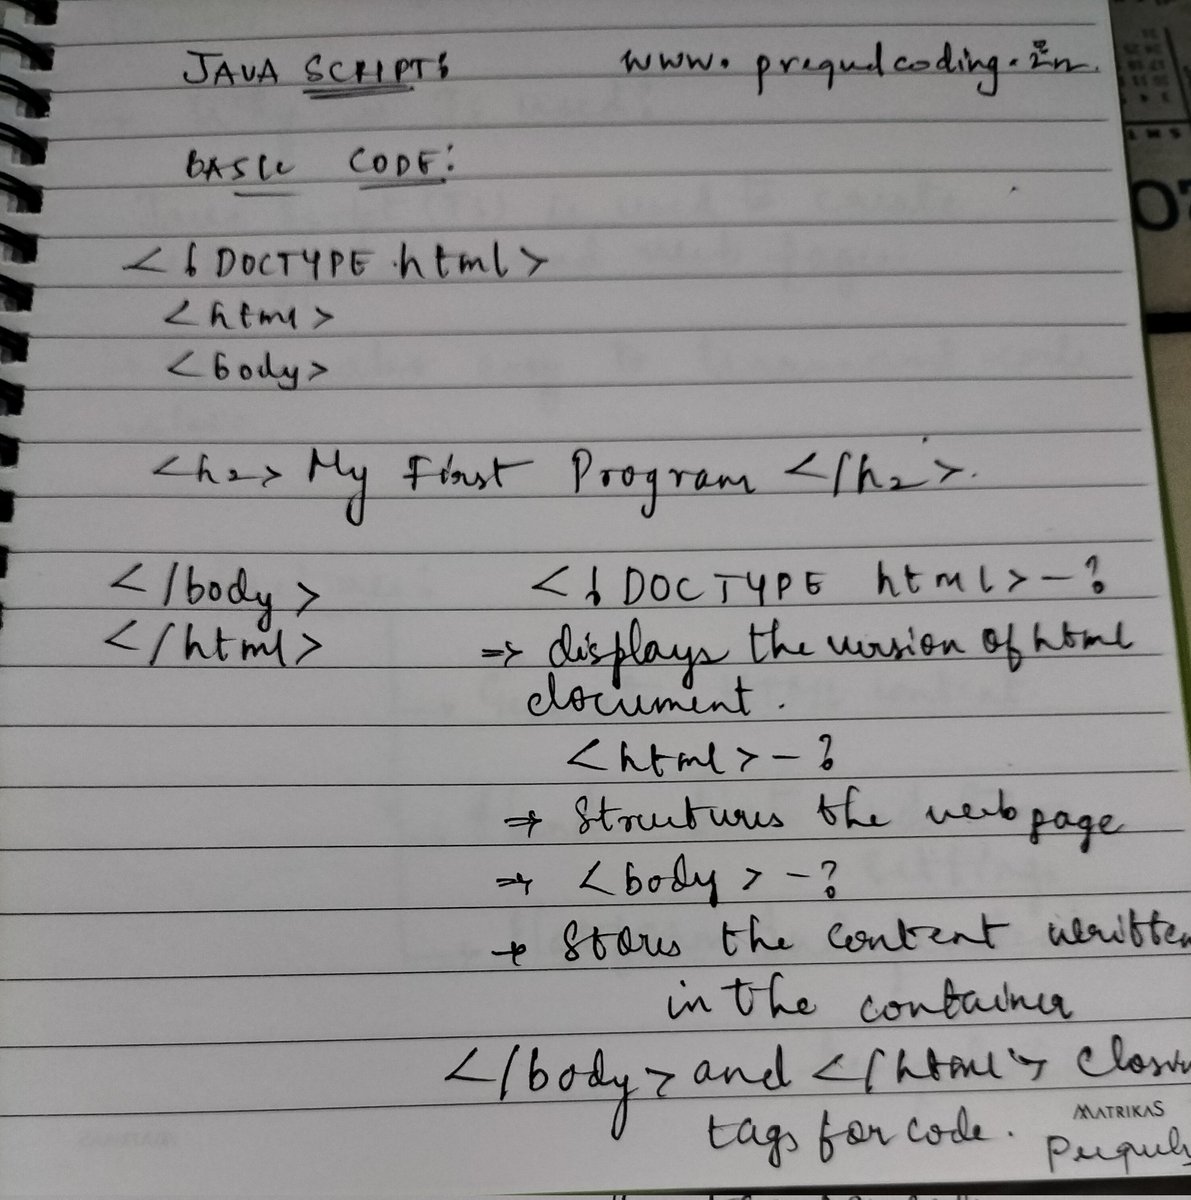 JAVA SCRIPTS www.prequelcoding.in
BASIC CODE:
<! DOCTYPE html>
<html>
<body>
<h2> My First Program </h2>.
</body>
</html>
<! DOCTYPE html> - ?
⇒ displays the version of html
document.
<html> - ?
⇒ Structures the web page
⇒ <body> - ?
→ Stores the content written
in the container
</body> and </html> Closin
tags for code.
MATRIKAS